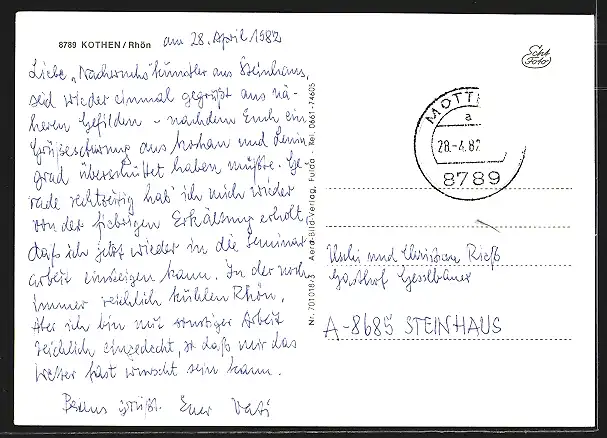 8789 KOTHEN/Rhön am 28. April 1982
Liebe „Nachwuchskünstler aus Steinhaus,
seid wieder einmal gegrüßt aus nä-
heren Gefilden – nachdem Euch ein
Grüßeschwung aus Moskau und Lenin-
grad überschüttet haben müßte. Ge-
rade rechtzeitig hab' ich mich wieder
von der fiebrigen Erkältung erholt,
daß ich jetzt wieder in die Seminar-
arbeit einsteigen kann. In der noch
immer reichlich kühlen Rhön.
Aber ich bin mit sonstiger Arbeit
reichlich eingedeckt, so daß mir das
Wetter fast wurscht sein kann.
grüßt Euer Vati
Nr. 701018/3 Aero-Bild-Verlag, Fulda Tel. 0661-74605
Echt
Foto
MOTT
a
28.-4.82
8789
Uschi und Christiane Rieß
Gasthof Gesslbauer
A-8685 STEINHAUS